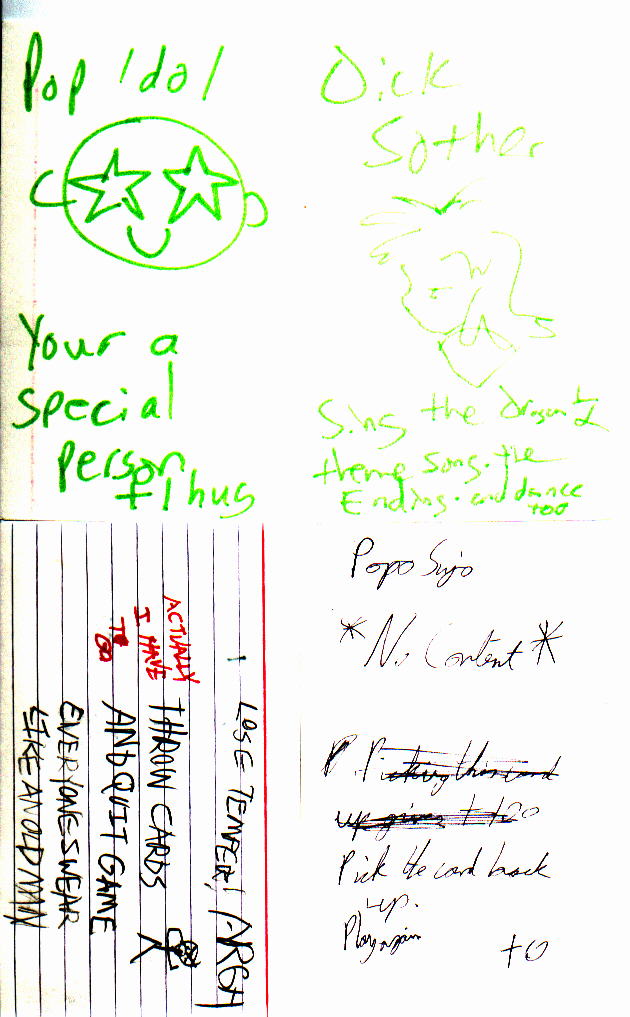 Pop Idol
Your a
special
person
+1 hug
Dick
Sother
Sing the Dragon
theme song. the
Ending. and dance
too
LOSE TEMPER! ARGH
ACTUALLY
I HAVE
TO
GO
THROW CARDS
AND QUIT GAME
EVERYONE SWEAR
LIKE AN OLD MAN
Popo Sujo
*No Content*
P. Picking this card
up gives
Pick the card back
up.
Play again
+0